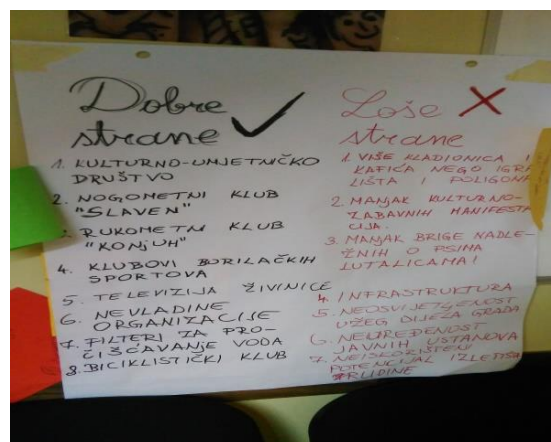 Dobre
strane
1. KULTURNO-UMJETNIČKO
DRUŠTVO
2. NOGOMETNI KLUB
"SLAVEN"
3. RUKOMETNI KLUB
"KONJUH"
4. KLUBOVI BORILAČKIH
SPORTOVA
5. TELEVIZIJA ŽIVINICE
6. NEVLADINE
ORGANIZACIJE
7. FILTERI ZA PRO-
ČIŠĆAVANJE VODA
8. BICIKLISTIČKI KLUB
Loše
strane
1. VIŠE KLADIONICA I
KAFIĆA NEGO IGRA
LIŠTA I POLIGONA
2. MANJAK KULTURNO-
ZABAVNIH MANIFESTA
CIJA.
3. MANJAK BRIGE NADLE-
ŽNIH O PSIMA
LUTALICAMA!
4. INFRASTRUKTURA
5. NEOSVIJETLJENOST
UŽEG DIJELA GRADA
6. NEUREĐENOST
JAVNIH USTANOVA
7. NEISKORIŠTENI
POTENCIJAL IZLETIŠTA